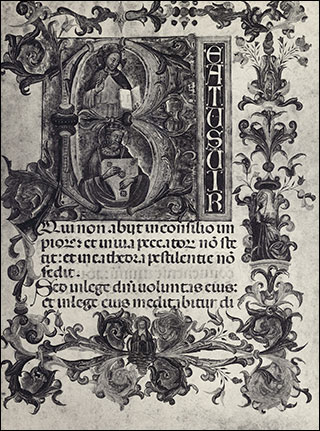 BEATUSUIR
Qui non abijt in consilio im
piorꝝ: et in uia peccatorꝝ nō ste
tit: et in cathedra pestilentie nō
sedit.
Sed in lege dn̄i uoluntas eius:
et in lege eius meditabitur di